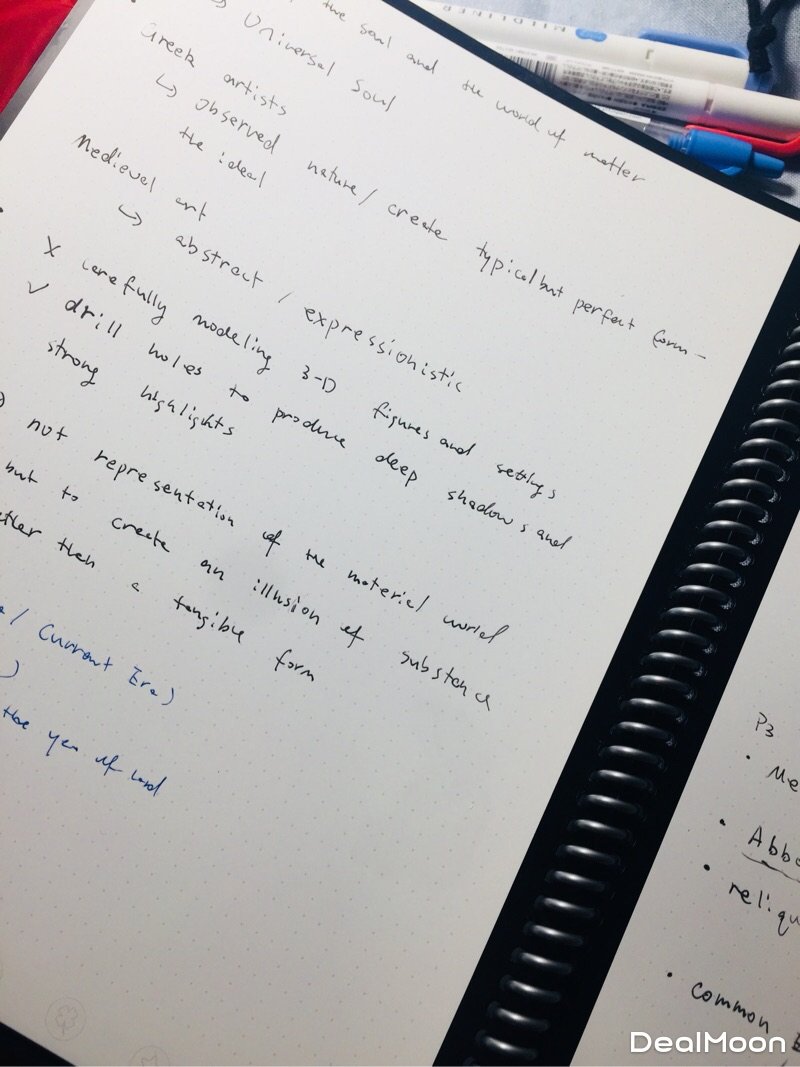 the soul and the world of matter
↳ Universal Soul
Greek artists
↳ observed nature / create typical but perfect form –
the ideal
Medievel art
↳ abstract / expressionistic
X carefully modeling 3-D figures and settings
✓ drill holes to produce deep shadows and
strong highlights
not representation of the material world
but to create an illusion of substance
then a tangible form
/ Current Era)
)
the year of Lord
MIDLINER
P3
• Me
• Abbo
• reliqu
• common
DealMoon